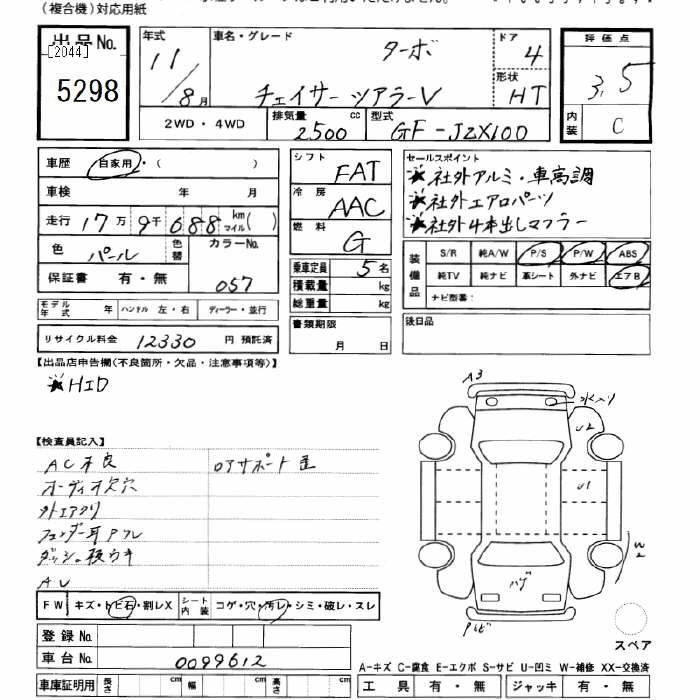 (複合機)対応用紙
出品No.
[2044]
5298
年式
11
8月
車名・グレード
ターボ
チェイサー ツアラーV
ドア
4
形状
HT
2WD・4WD
排気量
2500
cc
型式
GF-JZX100
評価点
3.5
内装
C
車歴
自家用・( )
車検 年 月
走行 17万9千688 km マイル( )
色
パール
色替
カラーNo.
057
保証書 有・無
シフト
FAT
冷房
AAC
燃料
G
乗車定員 5名
積載量 kg
総重量 kg
セールスポイント
★社外アルミ・車高調
★社外エアロパーツ
★社外4本出しマフラー
装備品
S/R 純A/W P/S P/W ABS
純TV 純ナビ 革シート 外ナビ エアB
ナビ型番:
モデル年式 年 ハンドル 左・右 ディーラー・並行
リサイクル料金 12330 円 預託済
書類期限
月 日
後日品
【出品店申告欄(不良箇所・欠品・注意事項等)】
★HID
【検査員記入】
AC不良
ロアサポート歪
オーディオ欠穴
外エアクリ
フェンダー耳
AU
FW キズ・トビ石・割レX
シート内装 コゲ・穴・汚レ・シミ・破レ・スレ
登録No.
車台No. 0099612
車庫証明用 長さ cm 幅 cm 高さ cm
A3
水入り
U2
U1
W2
ハゲ
スペア
A-キズ C-腐食 E-エクボ S-サビ U-凹ミ W-補修 XX-交換済
工具 有・無 ジャッキ 有・無